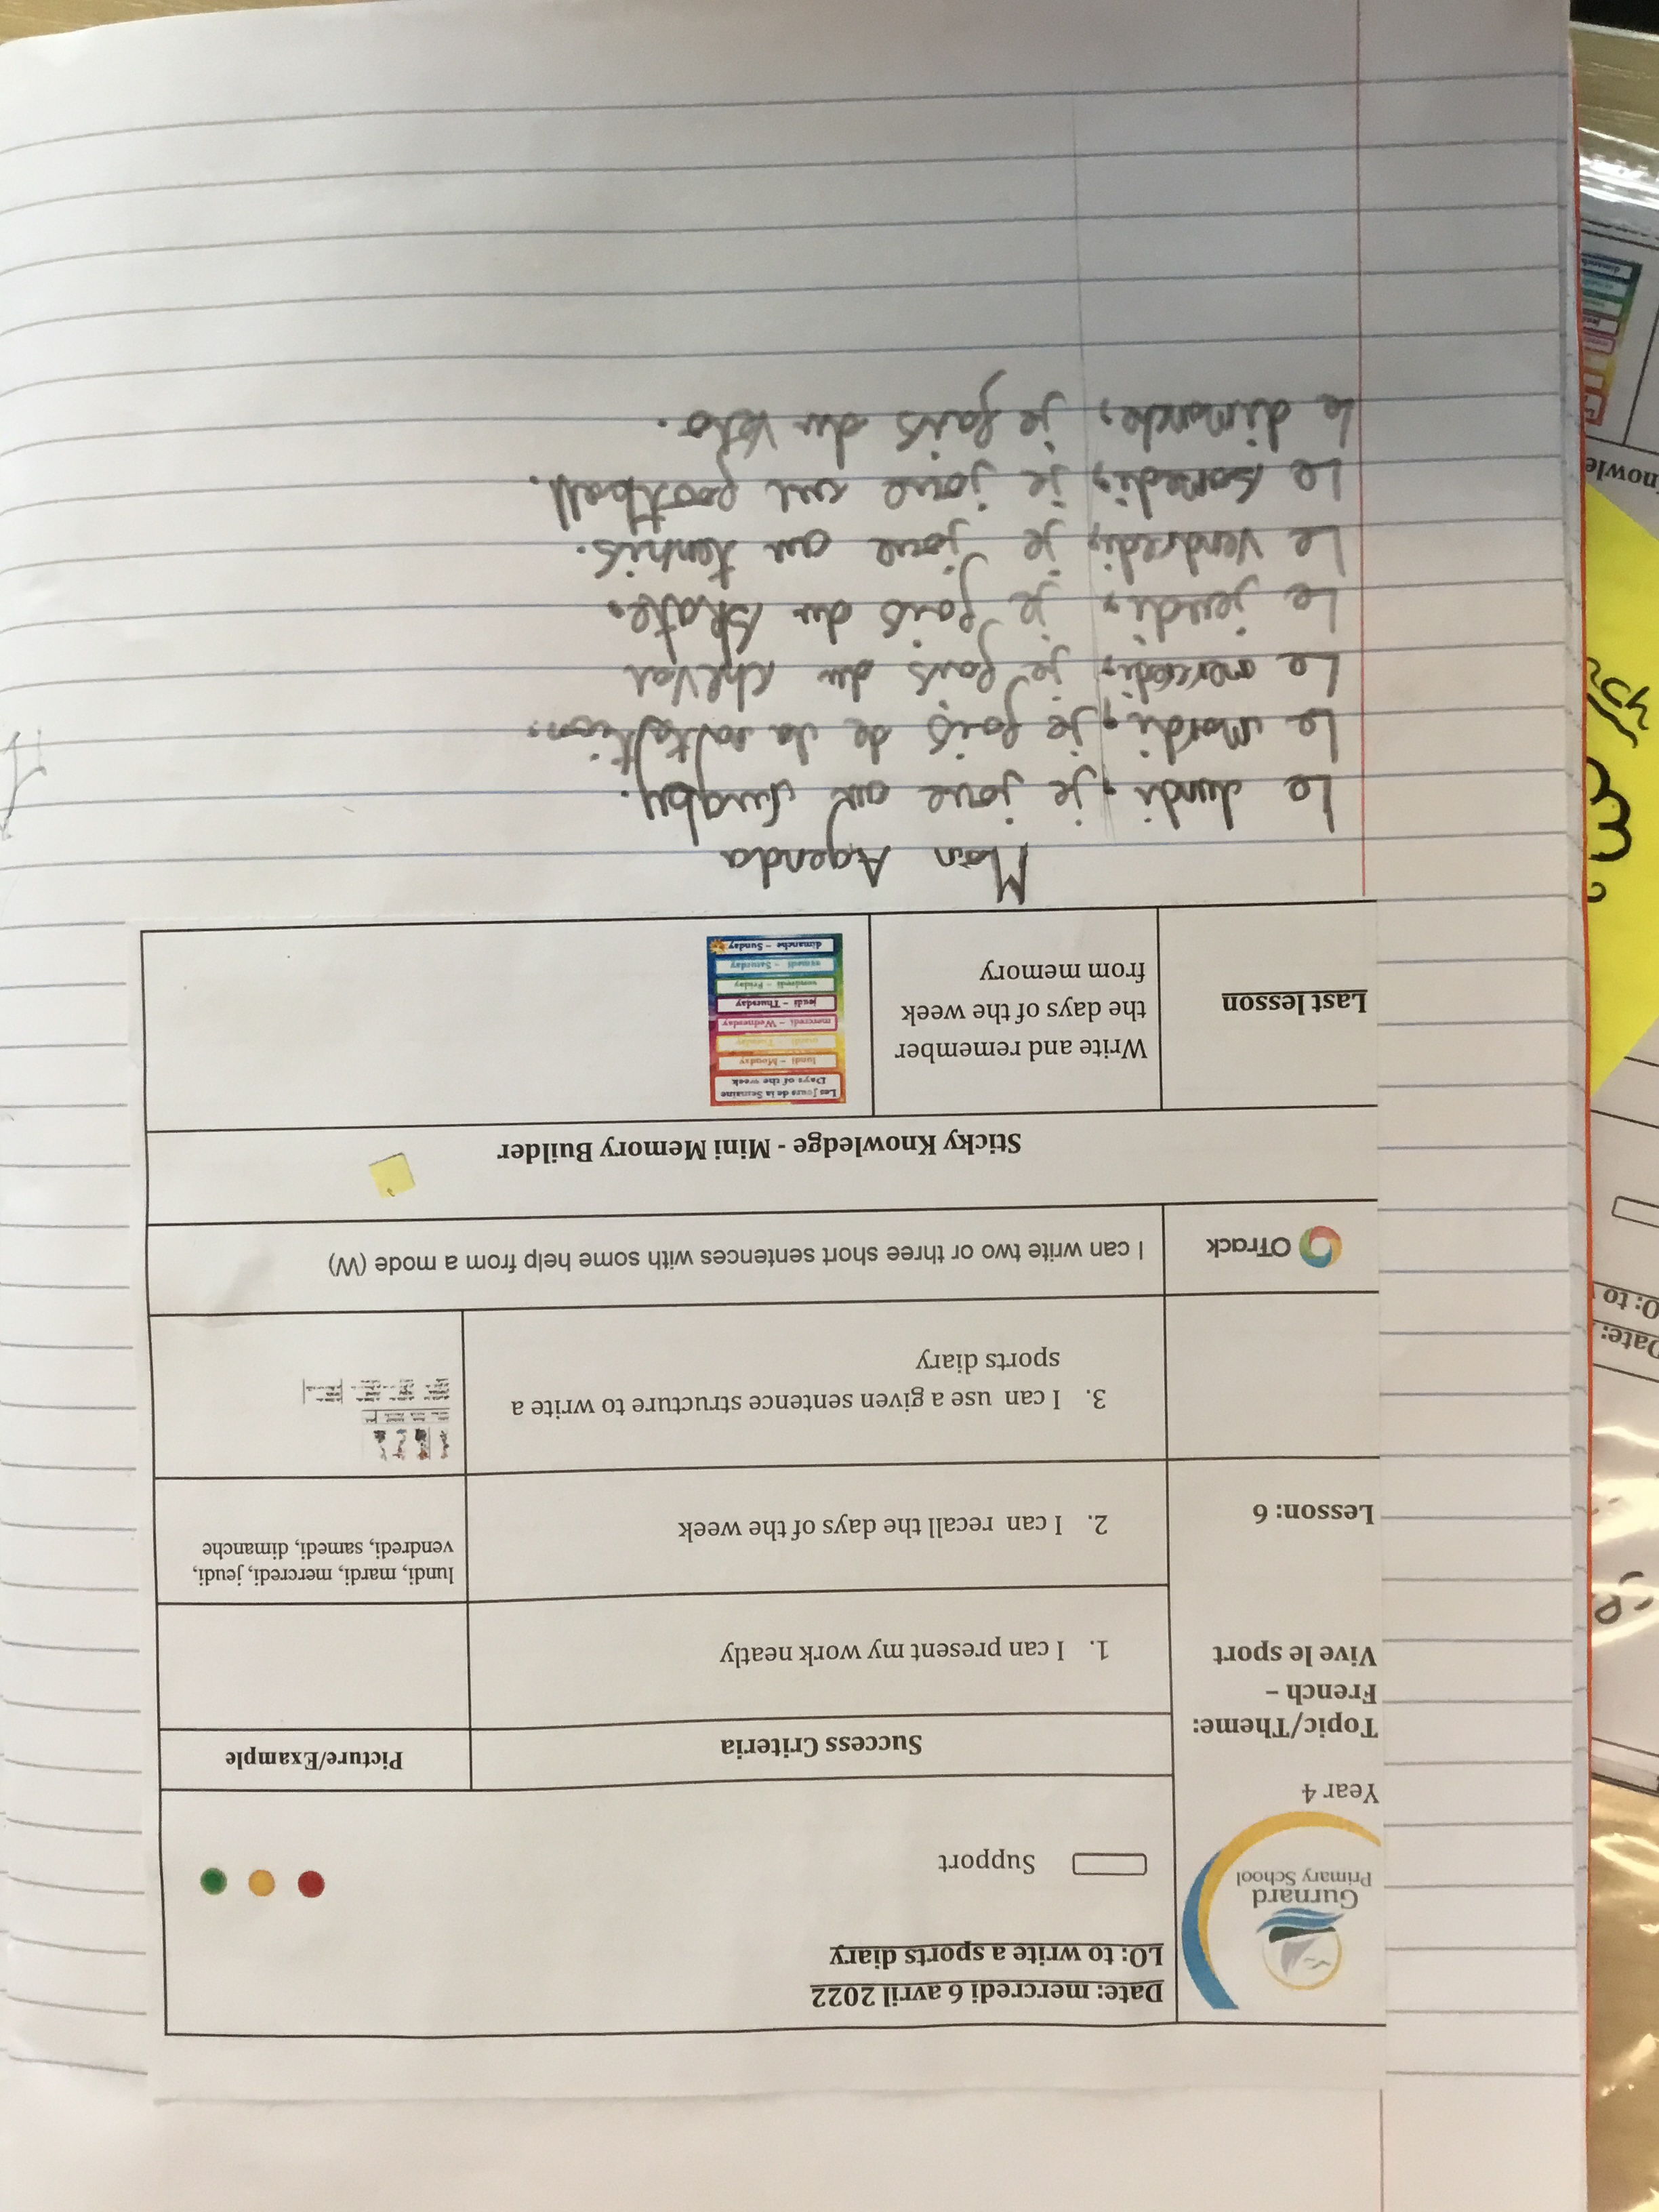 Date: mercredi 6 avril 2022
LO: to write a sports diary
Support
Gurnard
Primary School
Year 4
Topic/Theme:
French –
Vive le sport
Lesson: 6
Success Criteria
Picture/Example
1. I can present my work neatly
2. I can recall the days of the week
lundi, mardi, mercredi, jeudi,
vendredi, samedi, dimanche
3. I can use a given sentence structure to write a
sports diary
OTrack
I can write two or three short sentences with some help from a mode (W)
Sticky Knowledge - Mini Memory Builder
Last lesson
Write and remember
the days of the week
from memory
Les Jours de la Semaine
Days of the week
lundi - Monday
mardi - Tuesday
mercredi - Wednesday
jeudi - Thursday
vendredi - Friday
samedi - Saturday
dimanche - Sunday
Mon Agenda
Le lundi, je joue au rugby.
Le mardi, je fais de la natation.
Le mercredi, je fais du cheval
Le jeudi, je fais du skate.
Le vendredi, je joue au tennis.
Le samedi, je joue au football.
Le dimanche, je fais du vélo.
Date:
O: to
nowle